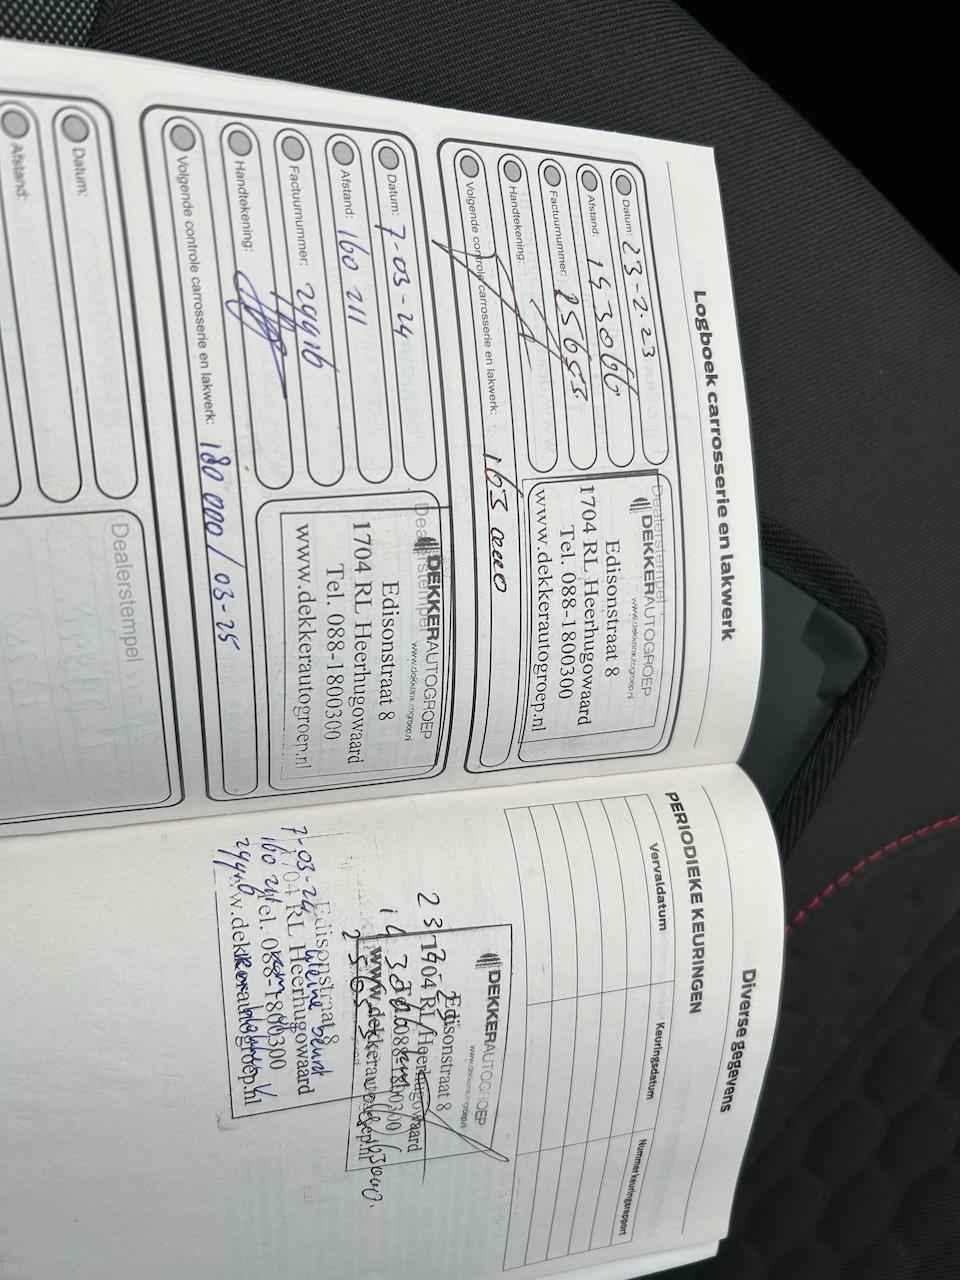 Logboek carrosserie en lakwerk
Datum: 23-2-23
Afstand: 153066
Factuurnummer: 25653
Handtekening:
Volgende controle carrosserie en lakwerk: 163 000
Dealerstempel
DEKKERAUTOGROEP
www.dekkerautogroep.nl
Edisonstraat 8
1704 RL Heerhugowaard
Tel. 088-1800300
www.dekkerautogroep.nl
Datum: 7-03-24
Afstand: 160 211
Factuurnummer: 29916
Handtekening:
Volgende controle carrosserie en lakwerk: 180 000 / 03-25
Dealerstempel
DEKKERAUTOGROEP
www.dekkerautogroep.nl
Edisonstraat 8
1704 RL Heerhugowaard
Tel. 088-1800300
www.dekkerautogroep.nl
Datum:
Afstand:
Dealerstempel
Diverse gegevens
PERIODIEKE KEURINGEN
Vervaldatum Keuringsdatum Nummer keuringsrapport
DEKKERAUTOGROEP
www.dekkerautogroep.nl
Edisonstraat 8
1704 RL Heerhugowaard
088-1800300
www.dekkerautogroep.nl
163000.
Edisonstraat 8
7-03-24 kleine beurt
1704 RL Heerhugowaard
Tel. 088-1800300
www.dekkerautogroep.nl